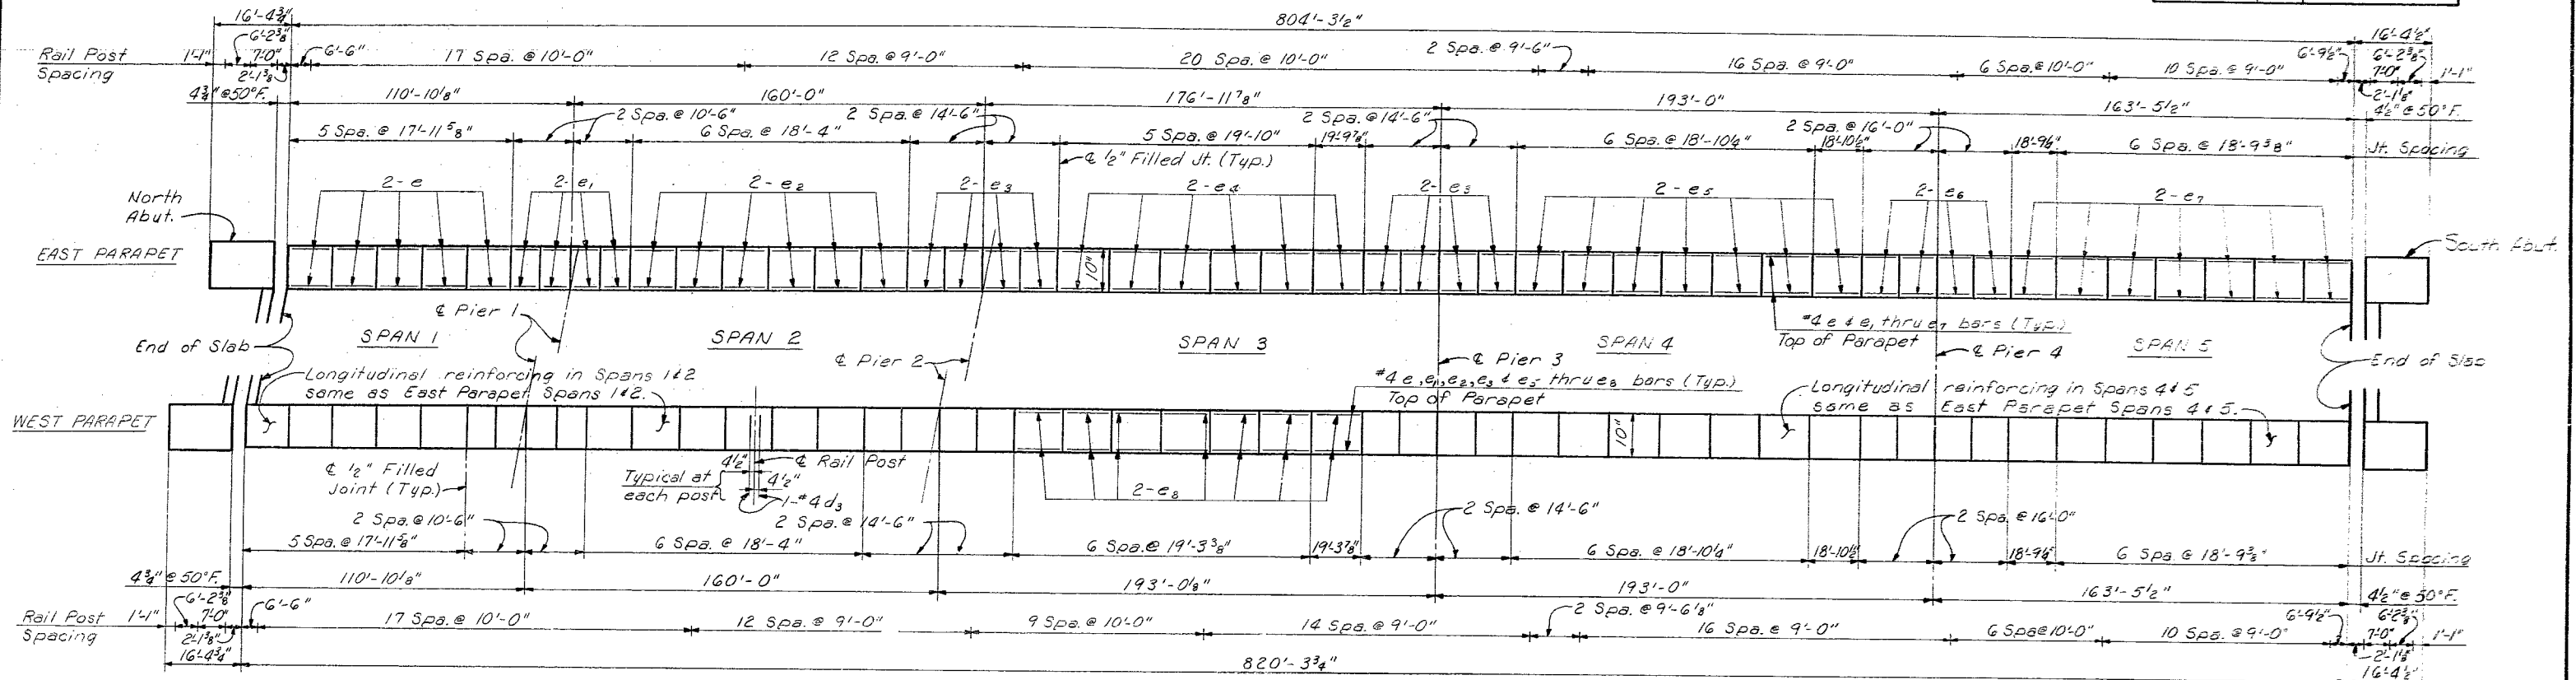 16'-4¾" 804'-3½" 16'-4½"
Rail Post Spacing 1'-1" 6'-2⅜" 7'-0" 2'-1⅜" 6'-6" 17 Spa. @ 10'-0" 12 Spa. @ 9'-0" 20 Spa. @ 10'-0" 2 Spa. @ 9'-6" 16 Spa. @ 9'-0" 6 Spa. @ 10'-0" 10 Spa. @ 9'-0" 6'-9½" 6'-2⅜" 7'-0" 2'-1⅛" 1'-1"
4¾" @ 50°F. 110'-10⅛" 160'-0" 176'-11⅞" 193'-0" 163'-5½" 4½" @ 50°F.
5 Spa. @ 17'-11⅝" 2 Spa. @ 10'-6" 6 Spa. @ 18'-4" 2 Spa. @ 14'-6" 5 Spa. @ 19'-10" 19'-9⅞" 2 Spa. @ 14'-6" 6 Spa. @ 18'-10¼" 18'-10½" 2 Spa. @ 16'-0" 18'-9¼" 6 Spa. @ 18'-9⅜" Jt. Spacing
℄ ½" Filled Jt. (Typ.)
2-e 2-e₁ 2-e₂ 2-e₃ 2-e₄ 2-e₃ 2-e₅ 2-e₆ 2-e₇
North Abut.
EAST PARAPET 10" South Abut.
℄ Pier 1
End of Slab SPAN 1 SPAN 2 ℄ Pier 2 SPAN 3 ℄ Pier 3 SPAN 4 ℄ Pier 4 SPAN 5 End of Slab
#4 e & e₁ thru e₇ bars (Typ.)
Top of Parapet
Longitudinal reinforcing in Spans 1&2
same as East Parapet Spans 1&2.
#4 e, e₁, e₂, e₃ & e₅ thru e₈ bars (Typ.)
Top of Parapet
Longitudinal reinforcing in Spans 4&5
same as East Parapet Spans 4&5.
WEST PARAPET 10"
℄ ½" Filled
Joint (Typ.)
4½" ℄ Rail Post
Typical at
each post
4½"
1-#4 d₃
2-e₈
5 Spa. @ 17'-11⅝" 2 Spa. @ 10'-6" 6 Spa. @ 18'-4" 2 Spa. @ 14'-6" 6 Spa. @ 19'-3⅜" 19'-3⅞" 2 Spa. @ 14'-6" 6 Spa. @ 18'-10¼" 18'-10½" 2 Spa. @ 16'-0" 18'-9¼" 6 Spa. @ 18'-9⅜" Jt. Spacing
4¾" @ 50°F. 110'-10⅛" 160'-0" 193'-0⅛" 193'-0" 163'-5½" 4½" @ 50°F.
Rail Post Spacing 1'-1" 6'-2⅜" 7'-0" 2'-1⅜" 6'-6" 17 Spa. @ 10'-0" 12 Spa. @ 9'-0" 9 Spa. @ 10'-0" 14 Spa. @ 9'-0" 2 Spa. @ 9'-6⅛" 16 Spa. @ 9'-0" 6 Spa @ 10'-0" 10 Spa. @ 9'-0" 6'-9½" 6'-2⅜" 7'-0" 2'-1⅛" 1'-1"
16'-4¾" 820'-3¾" 16'-4½"